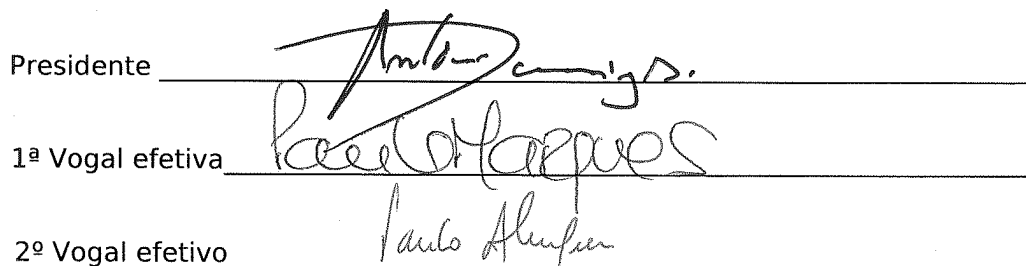 Presidente António Domingos.
1ª Vogal efetiva Paula Marques
2º Vogal efetivo Paulo